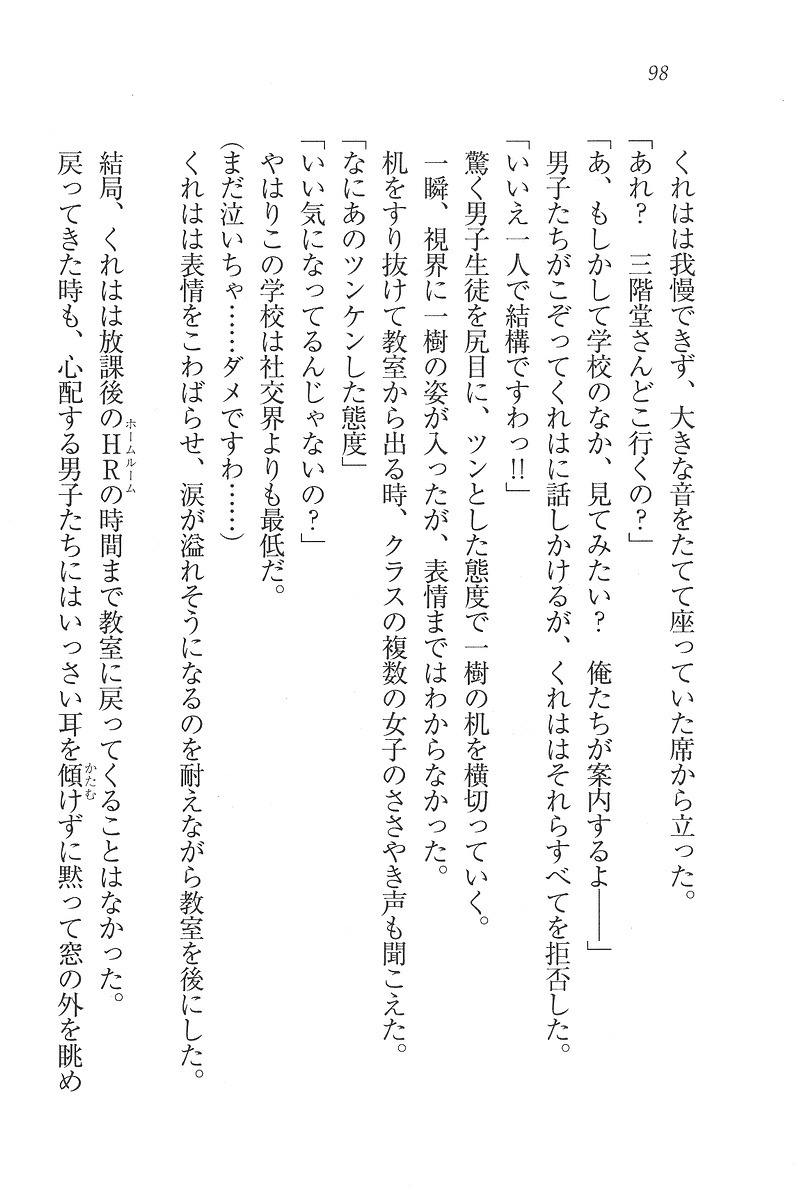 98
くれはは我慢できず、大きな音をたてて座っていた席から立った。
「あれ？　三階堂さんどこ行くの？」
「あ、もしかして学校のなか、見てみたい？　俺たちが案内するよ――」
男子たちがこぞってくれはに話しかけるが、くれははそれらすべてを拒否した。
「いいえ一人で結構ですわっ!!」
驚く男子生徒を尻目に、ツンとした態度で一樹の机を横切っていく。
一瞬、視界に一樹の姿が入ったが、表情まではわからなかった。
机をすり抜けて教室から出る時、クラスの複数の女子のささやき声も聞こえた。
「なにあのツンケンした態度」
「いい気になってるんじゃないの？」
やはりこの学校は社交界よりも最低だ。
(まだ泣いちゃ……ダメですわ……)
くれはは表情をこわばらせ、涙が溢れそうになるのを耐えながら教室を後にした。
結局、くれはは放課後のＨＲ（ホームルーム）の時間まで教室に戻ってくることはなかった。
戻ってきた時も、心配する男子たちにはいっさい耳を傾（かたむ）けずに黙って窓の外を眺め